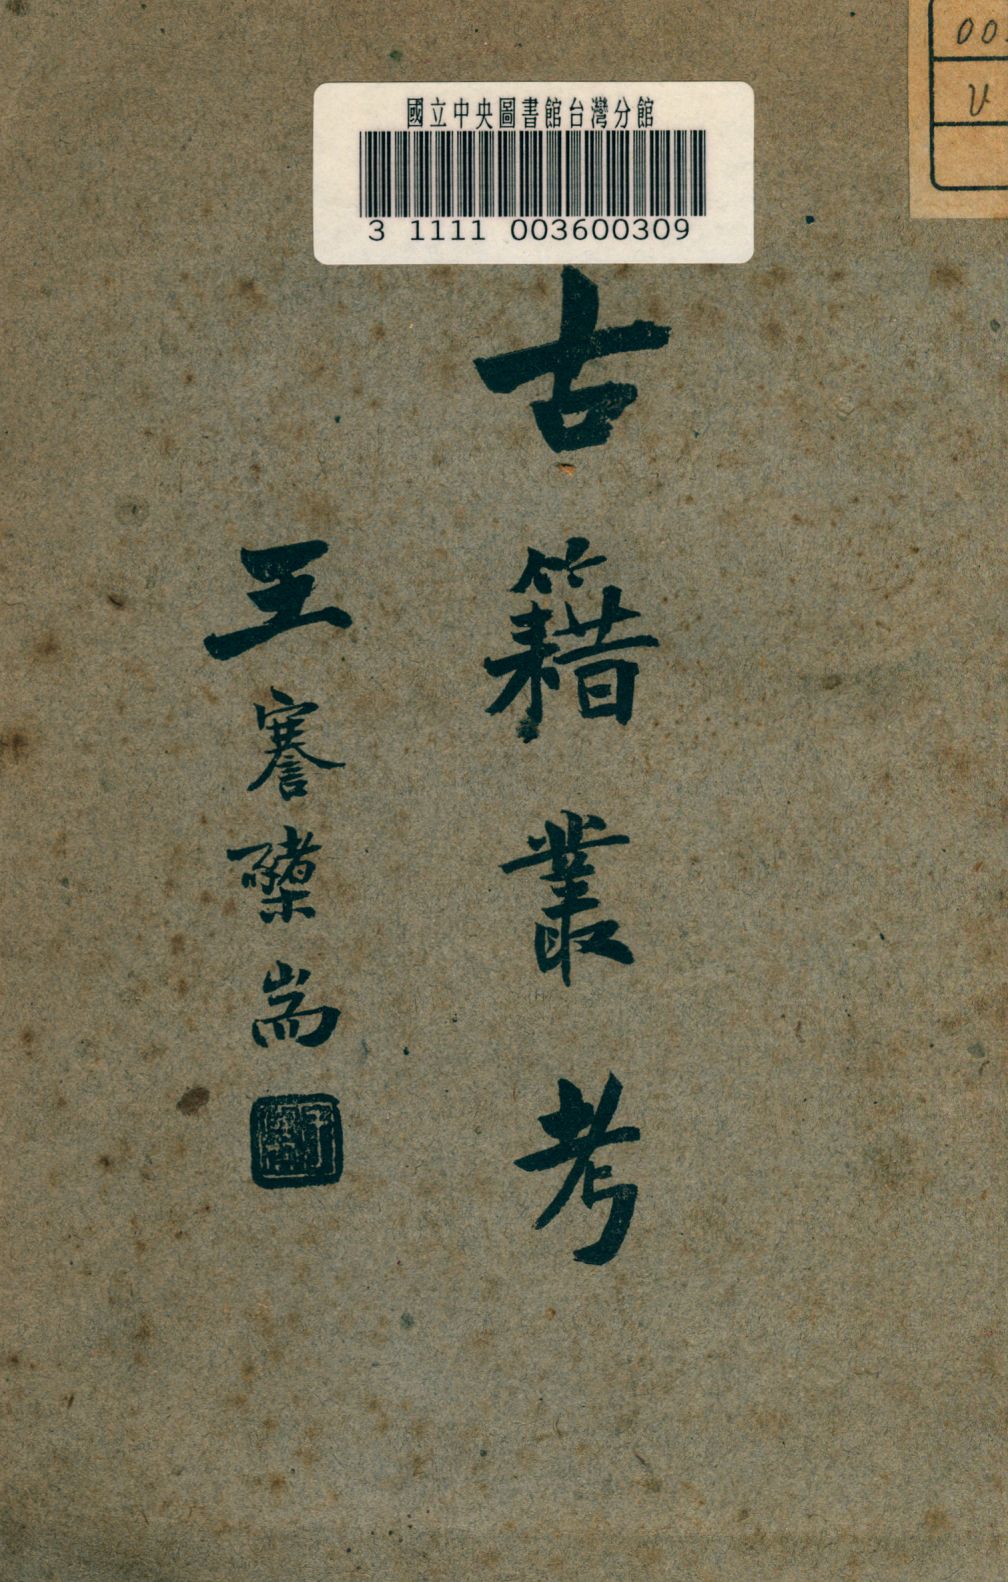 國立中央圖書館台灣分館
3 1111 003600309
00
古籍叢考
王謇櫫耑